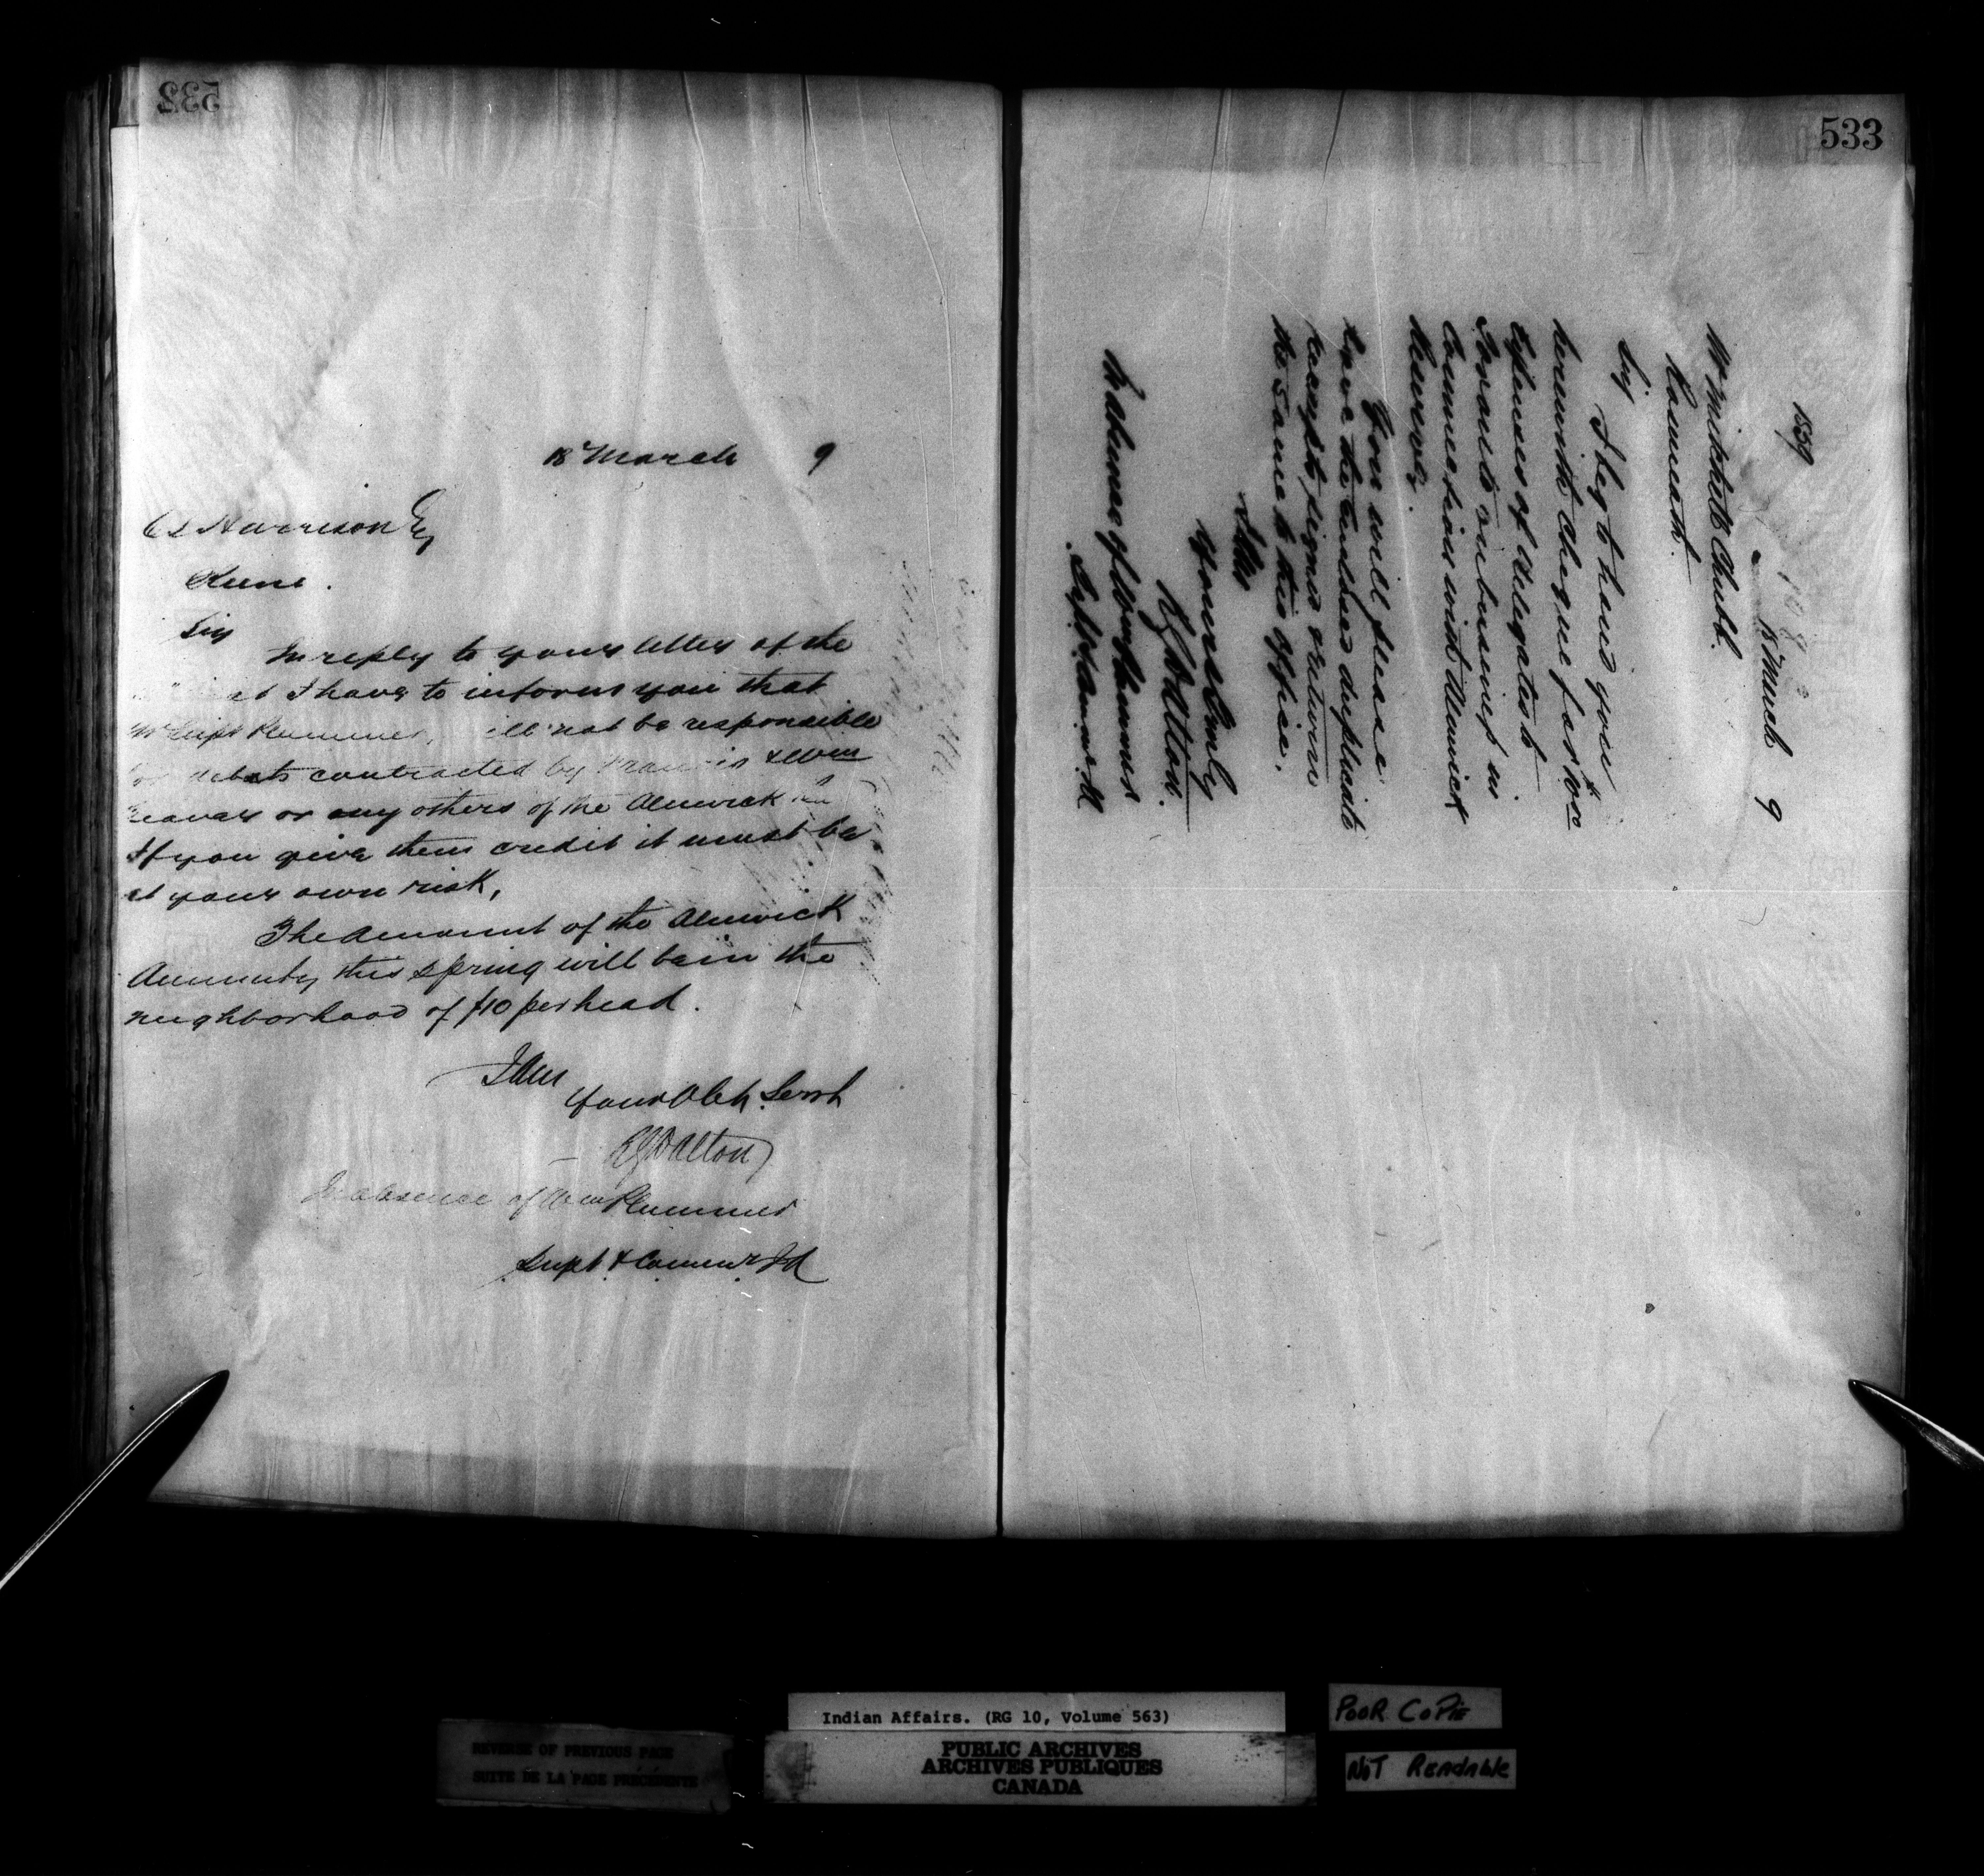 532
18 March 9
C S Harrison Esq
Keene.
Sir
In reply to your letter of the
I have to inform you that
Mr Supt Plummer, will not be responsible
for debts contracted by Francis & Wm
Beaver or any others of the Alnwick
If you give them credit it must be
at your own risk,
The Amount of the Alnwick
Annuity this spring will be in the
neighborhood of $10 per head.
I Am
Your Obt. Servt
Dalton
In absence of Wm Plummer
Supt & Commr I A
533
1559
18 March 9
Mr Mitchell Chubb.
Roseneath.
Sir
I beg to hand you
herewith Cheque for
Expenses of Delegates to
Toronto on business in
Connection with Alnwick
Reserve.
You will please
have the enclosed duplicate
receipts signed & return
the same to this office.
I Am
Yours truly
Dalton.
In absence of Wm Plummer
Indian Affairs. (RG 10, Volume 563)
PUBLIC ARCHIVES
ARCHIVES PUBLIQUES
CANADA
REVERSE OF PREVIOUS PAGE
SUITE DE LA PAGE PRÉCÉDENTE
POOR COPIE
NOT Readable